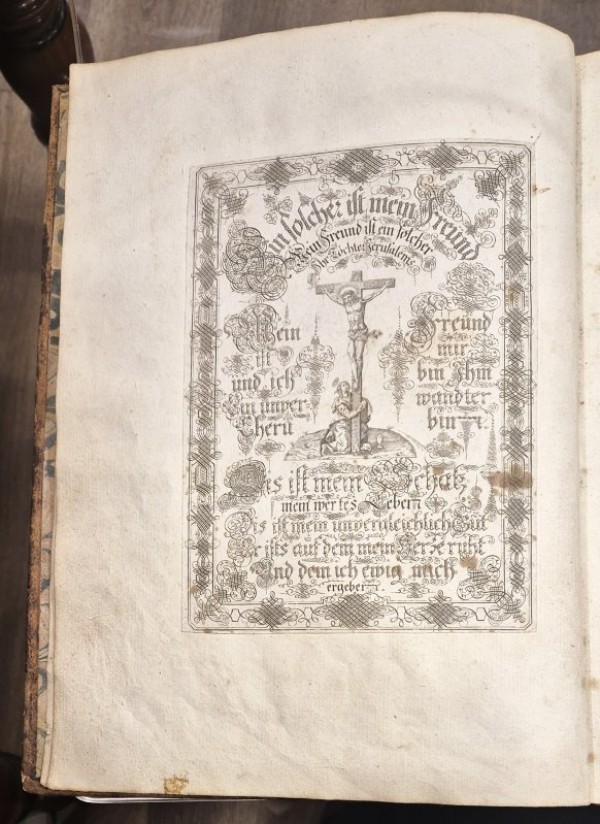 Ein solcher ist mein Freund
Mein Freund ist ein solcher
Ihr Töchter Jerusalems
Mein Freund
ist mir
und ich bin Ihm
Ein unver- wandter
bin
Das ist mein Schatz
mein wertes Leben
Dis ist mein unvergleichlich Gut
Er ists auf dem mein Hertze ruht
Und dem ich ewig mich
ergeben